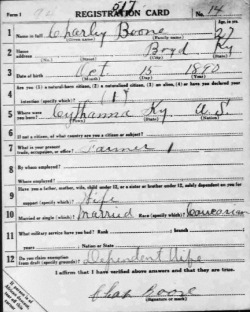 Form 1 217 No. 14
REGISTRATION CARD
1 Name in full Charley Boone 27
(Given name) (Family name) Age, in yrs.
2 Home address Boyd Ky
(No.) (Street) (City) (State)
3 Date of birth Oct 15 1890
(Month) (Day) (Year)
4 Are you (1) a natural-born citizen, (2) a naturalized citizen, (3) an alien, (4) or have you declared your
intention (specify which)? (1)
5 Where were you born? Cynthiana Ky U.S.
(Town) (State) (Nation)
6 If not a citizen, of what country are you a citizen or subject?
7 What is your present trade, occupation, or office? Farmer 1
8 By whom employed?
Where employed?
9 Have you a father, mother, wife, child under 12, or a sister or brother under 12, solely dependent on you for
support (specify which)? Wife
10 Married or single (which)? Married Race (specify which)? Caucasian
11 What military service have you had? Rank ; branch
years ; Nation or State
12 Do you claim exemption from draft (specify grounds)? Dependent Wife
I affirm that I have verified above answers and that they are true.
Chas Boone
(Signature or mark)